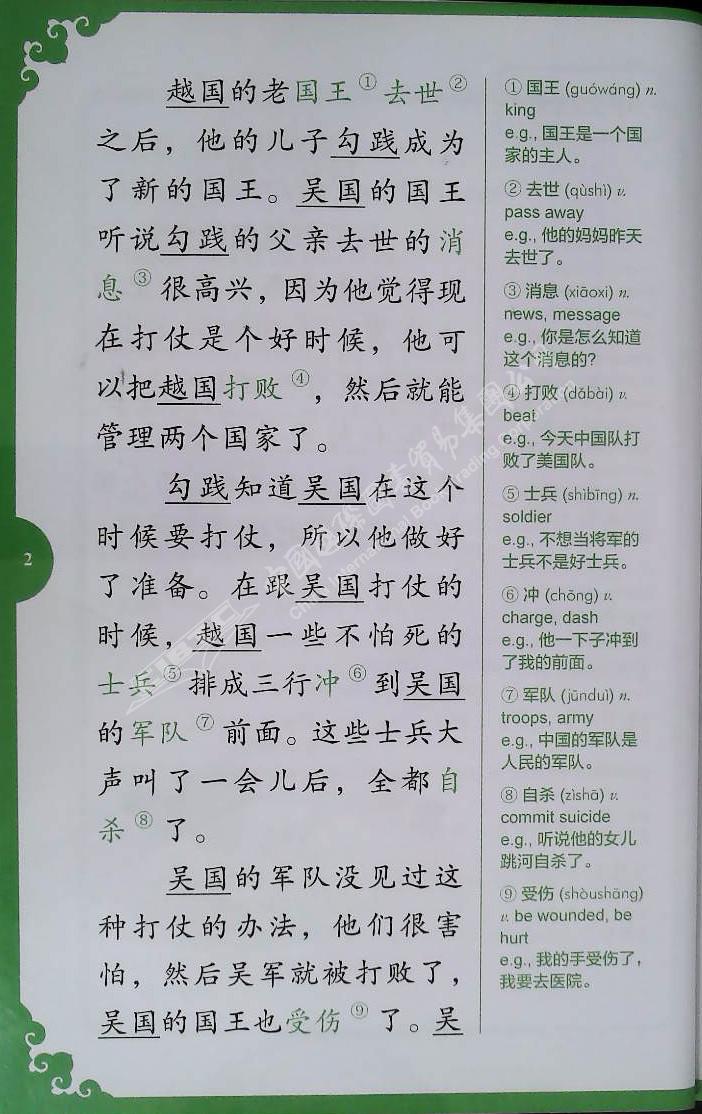 越国的老国王①去世②
之后，他的儿子勾践成为
了新的国王。吴国的国王
听说勾践的父亲去世的消
息③很高兴，因为他觉得现
在打仗是个好时候，他可
以把越国打败④，然后就能
管理两个国家了。
勾践知道吴国在这个
时候要打仗，所以他做好
了准备。在跟吴国打仗的
时候，越国一些不怕死的
士兵⑤排成三行冲⑥到吴国
的军队⑦前面。这些士兵大
声叫了一会儿后，全都自
杀⑧了。
吴国的军队没见过这
种打仗的办法，他们很害
怕，然后吴军就被打败了，
吴国的国王也受伤⑨了。吴
① 国王 (guówáng) n.
king
e.g., 国王是一个国
家的主人。
② 去世 (qùshì) v.
pass away
e.g., 他的妈妈昨天
去世了。
③ 消息 (xiāoxi) n.
news, message
e.g., 你是怎么知道
这个消息的?
④ 打败 (dǎbài) v.
beat
e.g., 今天中国队打
败了美国队。
⑤ 士兵 (shìbīng) n.
soldier
e.g., 不想当将军的
士兵不是好士兵。
⑥ 冲 (chōng) v.
charge, dash
e.g., 他一下子冲到
了我的前面。
⑦ 军队 (jūnduì) n.
troops, army
e.g., 中国的军队是
人民的军队。
⑧ 自杀 (zìshā) v.
commit suicide
e.g., 听说他的女儿
跳河自杀了。
⑨ 受伤 (shòushāng)
v. be wounded, be
hurt
e.g., 我的手受伤了，
我要去医院。
2
中國国际圖書貿易集團公司
China International Book Trading Corporation